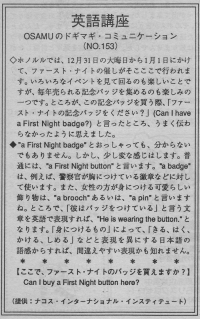 英語講座
OSAMUのドギマギ・コミュニケーション
(NO.153)
◇ホノルルでは、12月31日の大晦日から1月1日にか
けて、ファースト・ナイトの催しがそここで行われま
す。いろいろなイベントを見て回るのも楽しいことで
すが、毎年売られる記念バッジを集めるのも楽しみの
一つです。ところが、この記念バッジを買う際、「ファー
スト・ナイトの記念バッジをください?」(Can I have
a First Night badge?) と言ったところ、うまく伝わ
らなかったように思えました。
◆"a First Night badge"とおっしゃっても、分からない
でもありません。しかし、少し変な感じはします。普
通には、"a First Night button"と言います。"a badge"
は、例えば、警察官が胸につけている徽章などに対し
て使います。また、女性の方が身につける可愛らしい
飾り物は、"a brooch"あるいは、"a pin"と言います
ね。ところで、「彼はバッジをつけている」と言う文
章を英語で表現すれば、"He is wearing the button."と
なります。「身につけるもの」によって、「きる、はく、
かける、しめる」などと表現を異にする日本語の
語感からすれば、間違えやすい表現かも知れません。
* * * * * * * *
【ここで、ファースト・ナイトのバッジを買えますか?】
Can I buy a First Night button here?
(提供:ナコス・インターナショナル・インスティテュート)